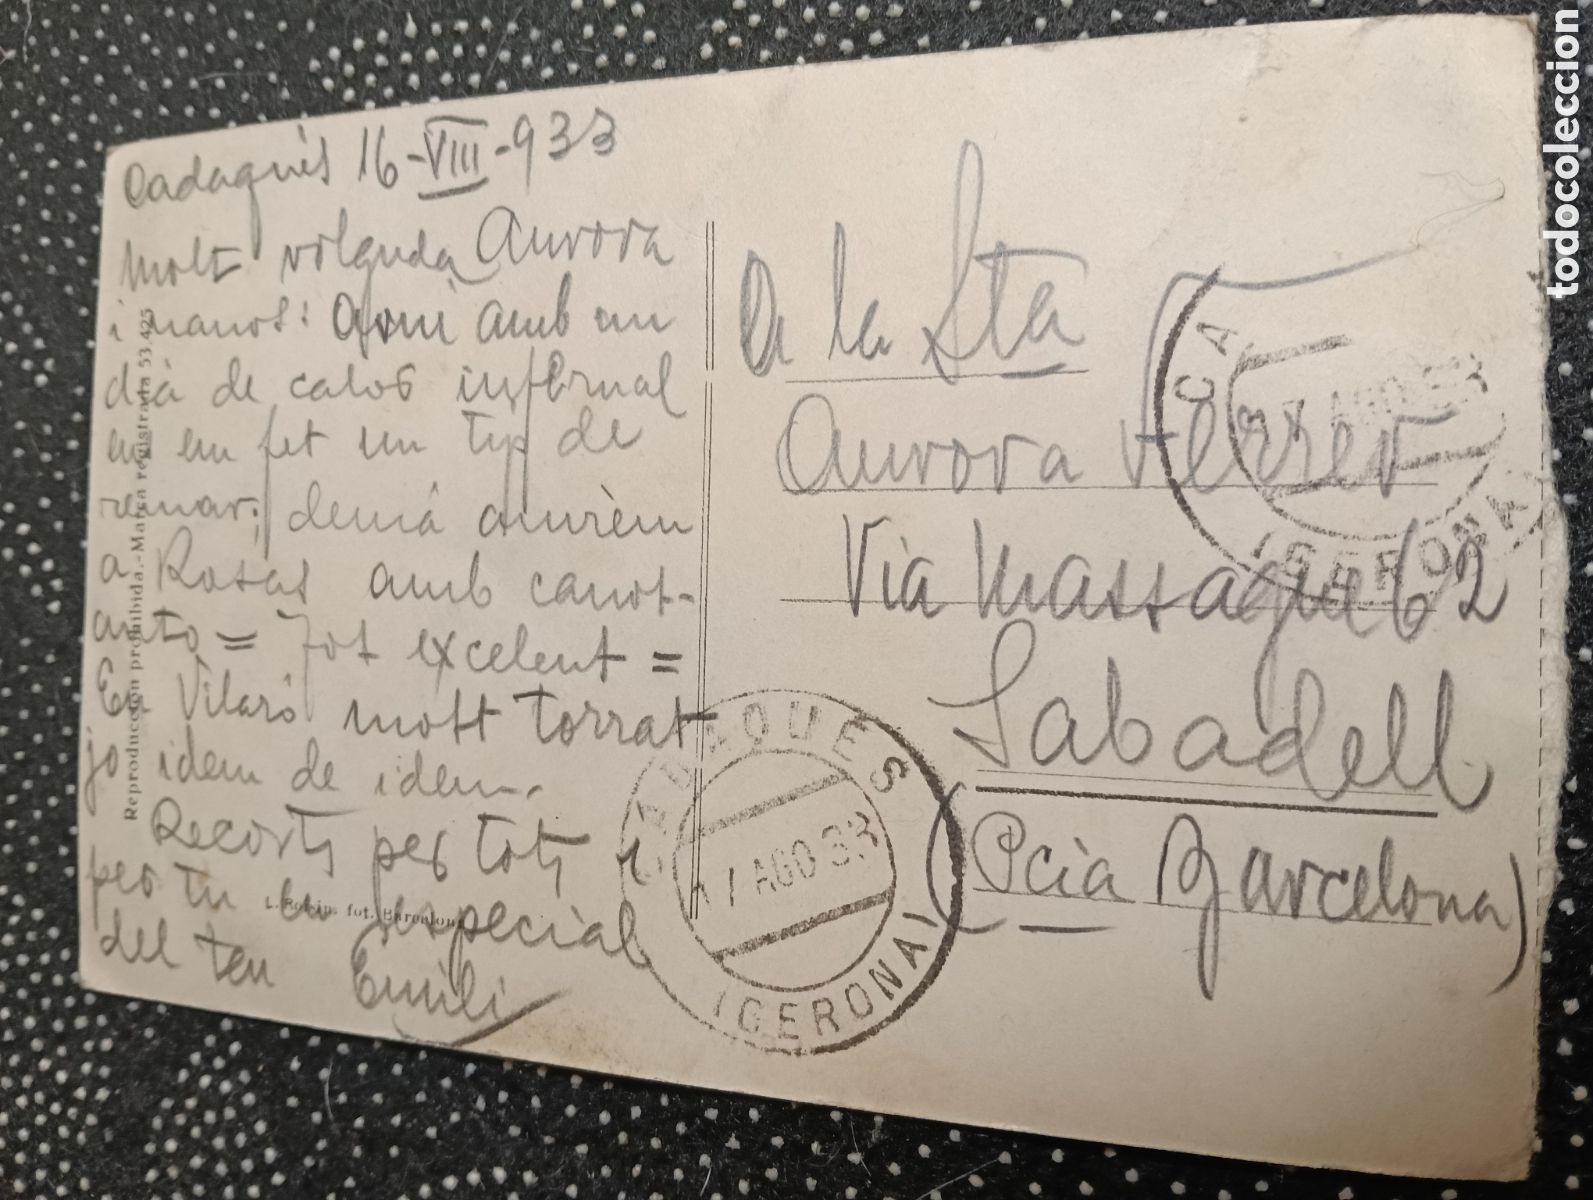 Cadaqués 16-VIII-933
Molt volguda Aurora
i nanos: Avui amb un
dia de calor infernal
ens em fet un tip de
remar; demà anirèm
a Rosas amb canot-
auto = Tot excelent =
En Vilaró molt torrat
jo idem de idem.
Recorts per tots i
per tu en especial
del teu Emili
Reproducción prohibida.-Marca registrada 53.425
L. Roisin, fot. Barcelona
A la Sta
Aurora Ferrer
Via Massague 62
Sabadell
(Pcia Barcelona)
CADAQUÉS
17 AGO 33
(GERONA)
CA
17 AGO 33
(GERONA)
todocoleccion